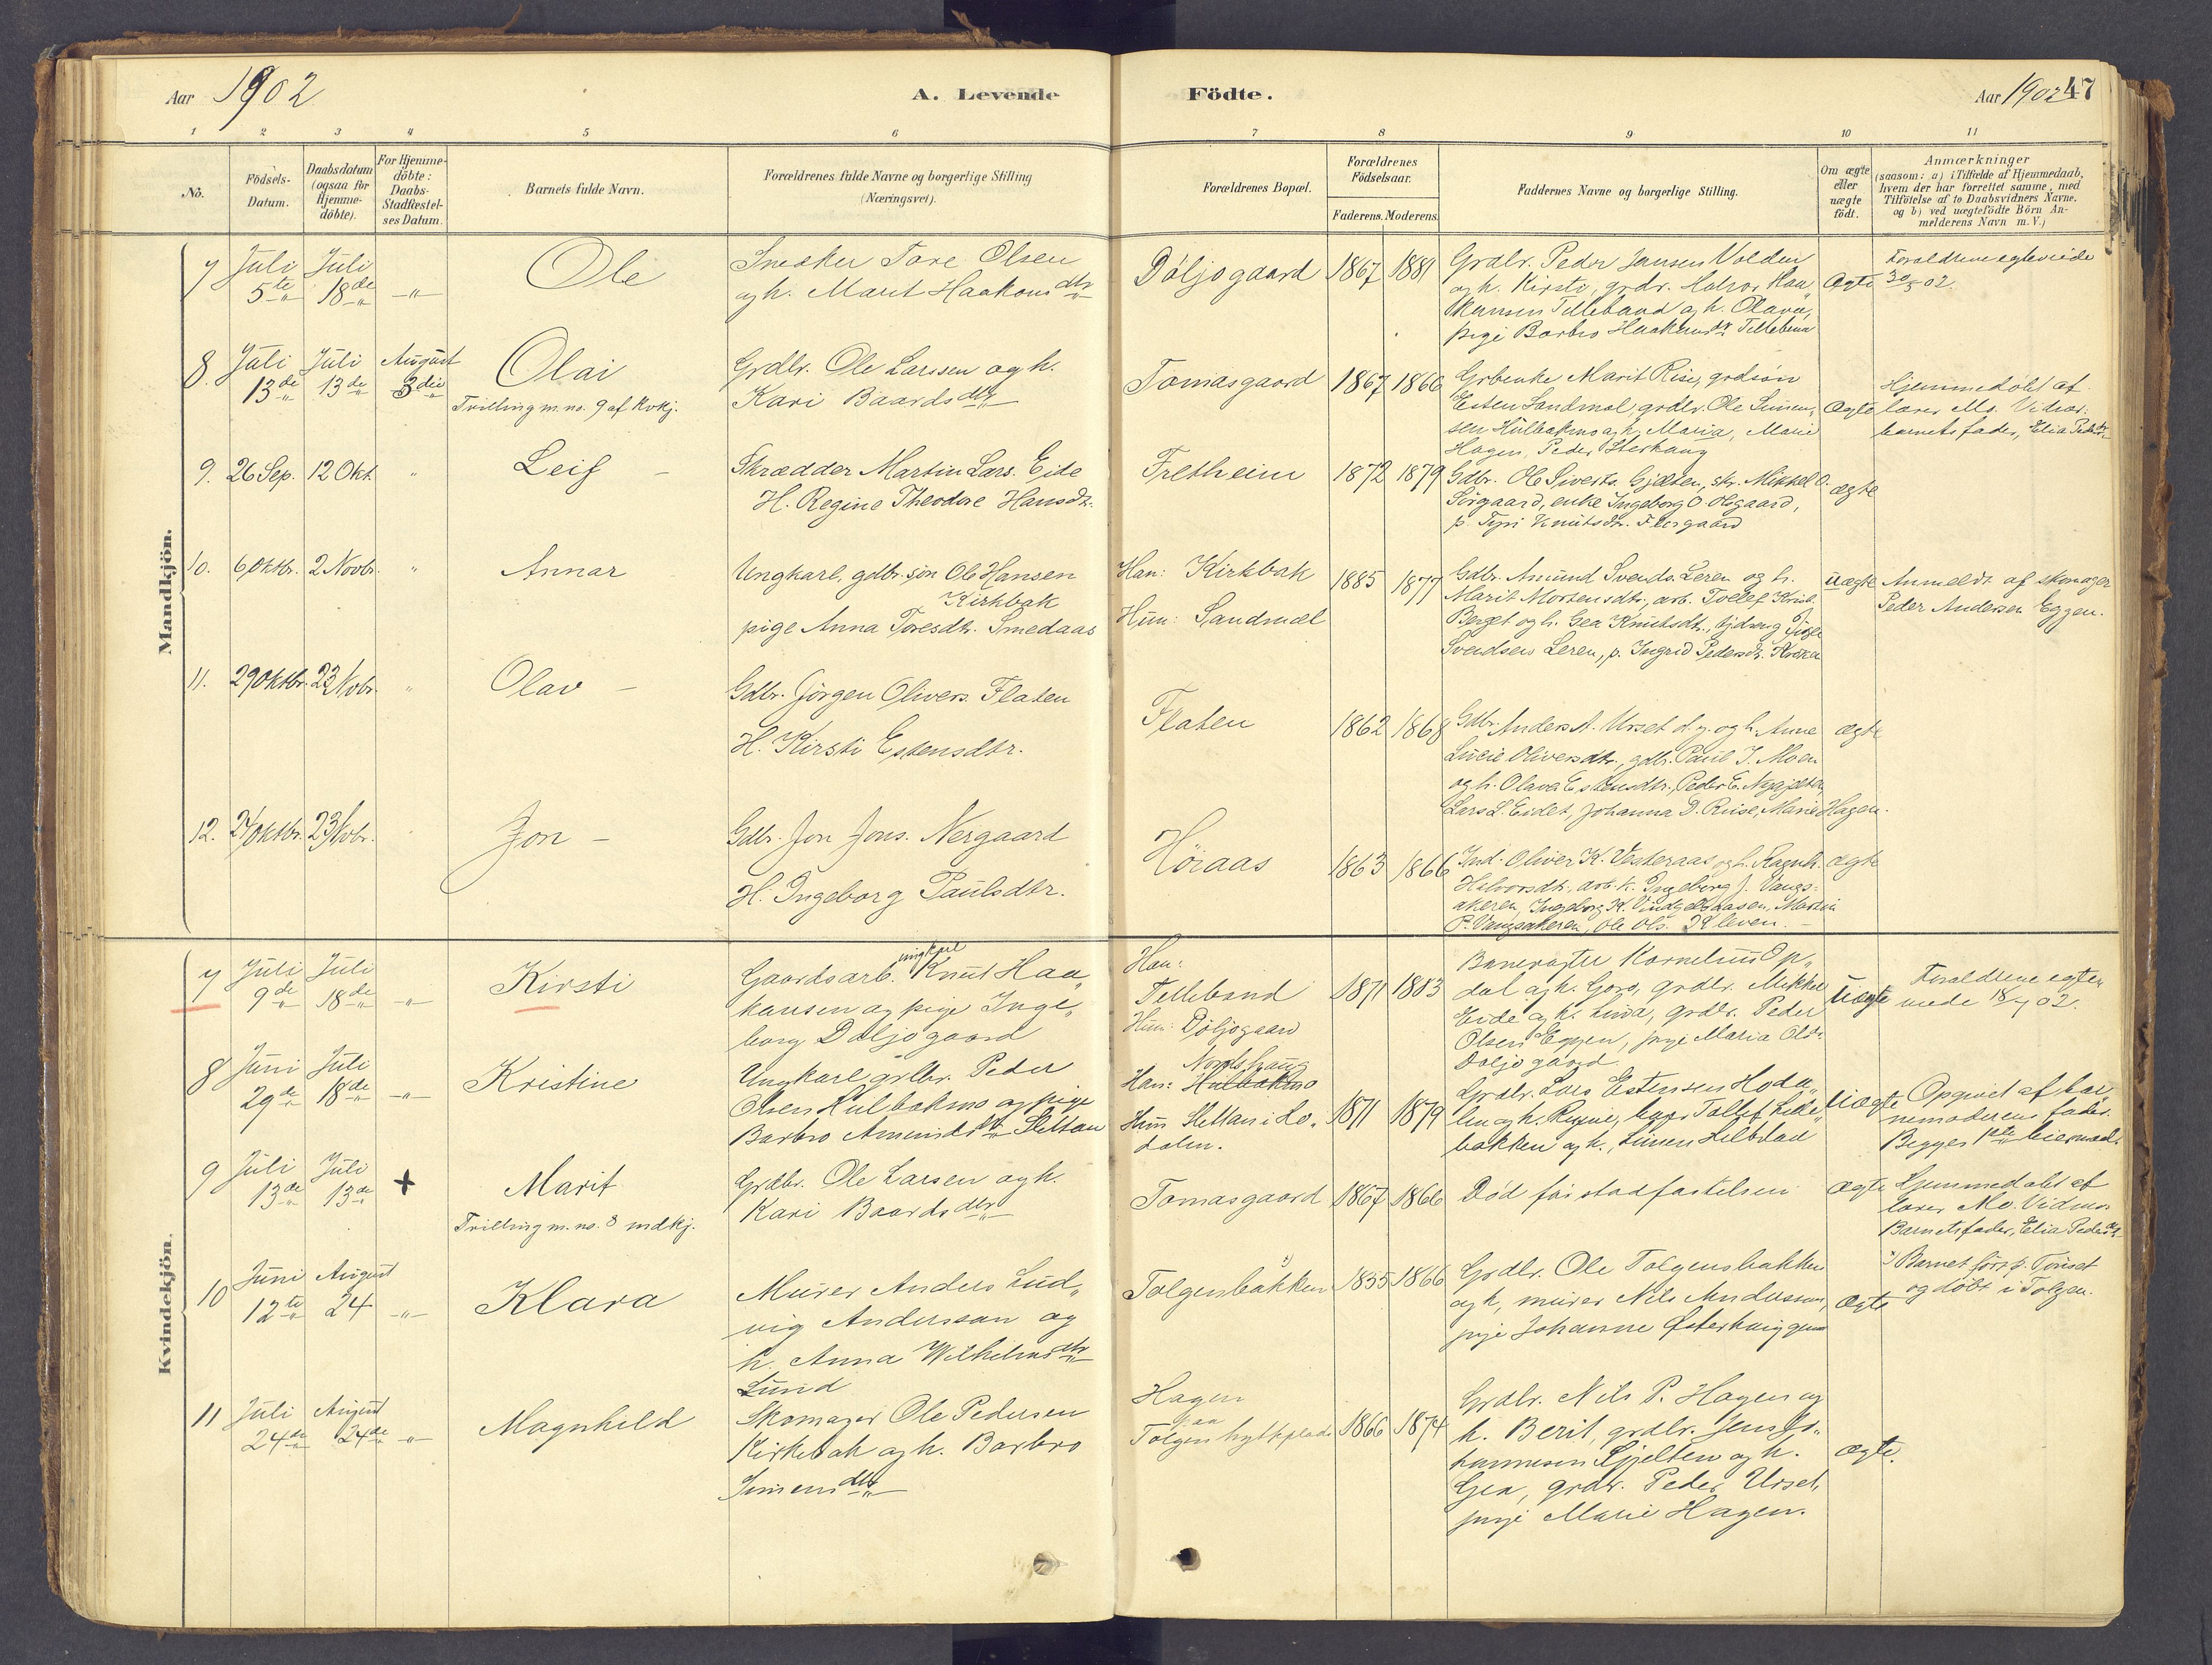 Aar 1902
A. Levende
Födte.
Aar 1902 47
1 2 3 4 5 6 7 8 9 10 11
No.
Födsels-
Datum.
Daabsdatum
(ogsaa for
Hjemme-
döbte).
For Hjemme-
döbte:
Daabs-
Stadfæstel-
ses Datum.
Barnets fulde Navn.
Forældrenes fulde Navne og borgerlige Stilling
(Næringsvei).
Forældrenes Bopæl.
Forældrenes
Födselsaar.
Faderens. Moderens.
Faddernes Navne og borgerlige Stilling.
Om ægte
eller
uægte
födt.
Anmærkninger
(saasom: a) i Tilfælde af Hjemmedaab,
hvem der har forrettet samme, med
Tilföielse af to Daabsvidners Navne,
og b) ved uægtefödte Börn An-
melderens Navn m. V.)
Mandkjön.
7 Juli 5te Juli 18de -"-
Ole
Snedker Tore Olsen
og h. Marit Haakonsdtr
Döljogaard 1867 1881
Grdbr. Peder Jansen Volden
og h. Kirsti, grdr. Halvor Haa"
kensen Tilleband og h. Olava,
pige Barbro Haakensdtr
Ægte
Forældrene egteviede
30/5 02.
8. Juli 13de Juli 13de August 3die
Olai
Trilling m. no. 9 af Kvkj.
Grdbr. Ole Larsen og h.
Kari Baardsdtr
Tomasgaard 1867 1866
Grbenke Marit Rise, grdsøn
Esten Sandmæl, grdbr. Ole Simen"
sen Hulbakmo og h. Maria, Marie
Hagen, Peder
Ægte
Hjemmedöbt af
lærer Mo. Vidner:
barnets fader, Elia Pedersdtr
9. 26 Sep. 12 Okt. "
Leif -
Skrædder Martin Lars. Eide
H. Regine Theodore Hansdtr.
Fretheim 1872 1879
Gdbr. Ole Siverts. Gjelten, skr. Mikkel O.
Sörgaard, enke Ingeborg O. Olsgaard,
p. Knutsdtr.
ægte
10. 6 Oktbr. 2 Novbr. "
Annar
Ungkarl, gdbr.sön Ole Hansen
Kirkbak
pige Anna Toresdtr. Smedaas
Han: Kirkbak
Hun: Sandmæl
1885 1877
Gdbr. Amund Svends. Leren og h.
Marit Mortensdtr., arb. Tollef Krist.
Berget og h. Gea Knutsdtr.,
Svendsen Leren, p. Ingrid Pedersdtr.
uægte
Anmeldt af skomager
Peder Andersen Eggen.
11. 29 Oktbr. 23 Novbr. "
Olav -
Gdbr. Jörgen Olivers. Flaten
H. Kirsti Estensdtr.
Flaten 1862 1868
Gdbr. Anders A. Urset d. y. og h. Anne
Lucie Oliversdtr., gdbr. Paul J. Moen
og h. Olava Estensdtr., Peder E. Nygjelten,
Lars L. Eidet, Johanna D. Riise, Marie Hagen.
ægte
12. 24 Oktbr. 23 Novbr.
Jon -
Gdbr. Jon Jons. Nergaard
H. Ingeborg Paulsdtr.
Höiaas 1863 1866
Ind. Oliver K. Vesteraas og h. Ragnh.
Halvorsdtr., arb. k. Ingeborg J. Vangs-
akeren, Ingeborg K. Vindgelsaasen, Martin
P. Vangsakeren, Ole Ols. Kleven. -
ægte
Kvindekjön.
7 Juli 9de Juli 18de -"-
Kirsti
ungkarl
Gaardsarb. Knut Haa"
kansen og pige Inge"
borg Döljogaard
Han:
Tilleband
Hun: Döljogaard
1871 1883
Banevogter Kornelius Op"
dal og h. Goro, grdbr. Mikkel
Eide og h. Lina, grdbr. Peder
Olsen Eggen, pige Maria Olsdtr
Döljogaard
Uægte
Forældrene egte
viede 18/7 02.
8 Juni 29de Juli 18de -"-
Kristine
Ungkarl grdbr. Peder
Olsen Hulbakmo og pige
Barbro Amundsdtr Slettan
Nordshaug
Han: Hulbakmo
Hun Slettan i Lo"
dalen.
1871 1879
Grdbr. Lars Estensen Hoda"
len og h. Regine, Tollef Lille"
bakken og h., Simen
Uægte
Opgivet af bar"
nemoderens fader.
Begges 1ste leiermaal.
9 Juli 13de Juli 13de +
Marit
Trilling m. no. 8 mdkj.
Grdbr. Ole Larsen og h.
Kari Baardsdtr
Tomasgaard 1867 1866
Död för stadfæstelsen
Ægte
Hjemmedöbt af
lærer Mo. Vidner
Barnets fader, Elia Pedersdtr
10 Juni 12te August 24 -"-
Klara
Murer Anders Lud"
vig Andersson og
h. Anna Wilhelmsdtr
Lund
Tolgensbakken 1855 1866
Grdbr. Ole Tolgensbakken
og h., murer Nils Andersson,
pige Johanne
Ægte
Barnet født p. Tönset
og döbt i Tolgen.
11 Juli 24de August 24de -"-
Magnhild
Skomager Ole Pedersen
Kirkebak og h. Barbro
Simensdtr
Hagen
paa
Tolgen hytteplads
1866 1874
Grdbr. Nils P. Hagen og
h. Berit, grdbr. Jens Jo"
hannesen Gjelten og h.
Gea, grdbr. Peder Urset,
pige Marie Hagen.
ægte.